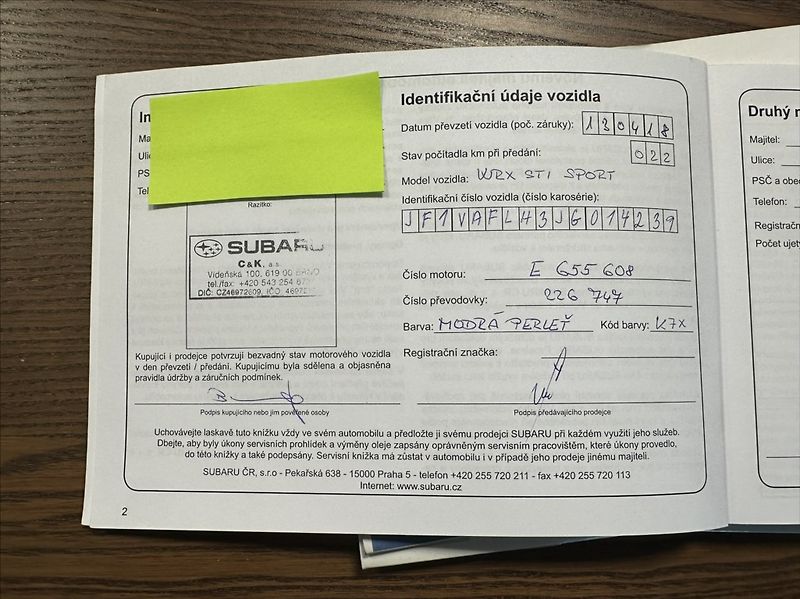 In
Identifikační údaje vozidla
Ma
Datum převzetí vozidla (poč. záruky): 130418
Ulic
Stav počítadla km při předání: 022
PS
Model vozidla: WRX STI SPORT
Tel
Identifikační číslo vozidla (číslo karosérie):
JF1VAFLH3JG014239
Razítko:
SUBARU
C&K, a.s.
Vídeňská 100, 619 00 BRNO
tel./fax: +420 543 254 67
DIČ: CZ46972609, IČO: 4697
Číslo motoru: E 655 608
Číslo převodovky: 226 747
Barva: MODRÁ PERLEŤ Kód barvy: K7X
Registrační značka:
Kupující i prodejce potvrzují bezvadný stav motorového vozidla
v den převzetí / předání. Kupujícímu byla sdělena a objasněna
pravidla údržby a záručních podmínek.
Podpis kupujícího nebo jím pověřené osoby
Podpis předávajícího prodejce
Uchovávejte laskavě tuto knížku vždy ve svém automobilu a předložte ji svému prodejci SUBARU při každém využití jeho služeb.
Dbejte, aby byly úkony servisních prohlídek a výměny oleje zapsány oprávněným servisním pracovištěm, které úkony provedlo,
do této knížky a také podepsány. Servisní knížka má zůstat v automobilu i v případě jeho prodeje jinému majiteli.
SUBARU ČR, s.r.o - Pekařská 638 - 15000 Praha 5 - telefon +420 255 720 211 - fax +420 255 720 113
Internet: www.subaru.cz
2
Druhý
Majitel:
Ulice:
PSČ a obe
Telefon:
Registračn
Počet ujet